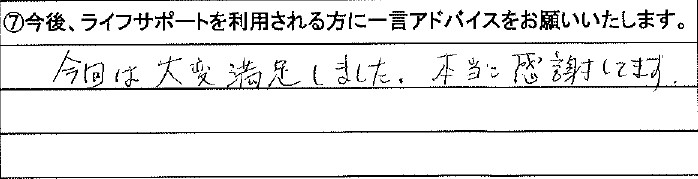 ⑦今後、ライフサポートを利用される方に一言アドバイスをお願いいたします。
今回は大変満足しました。本当に感謝してます。